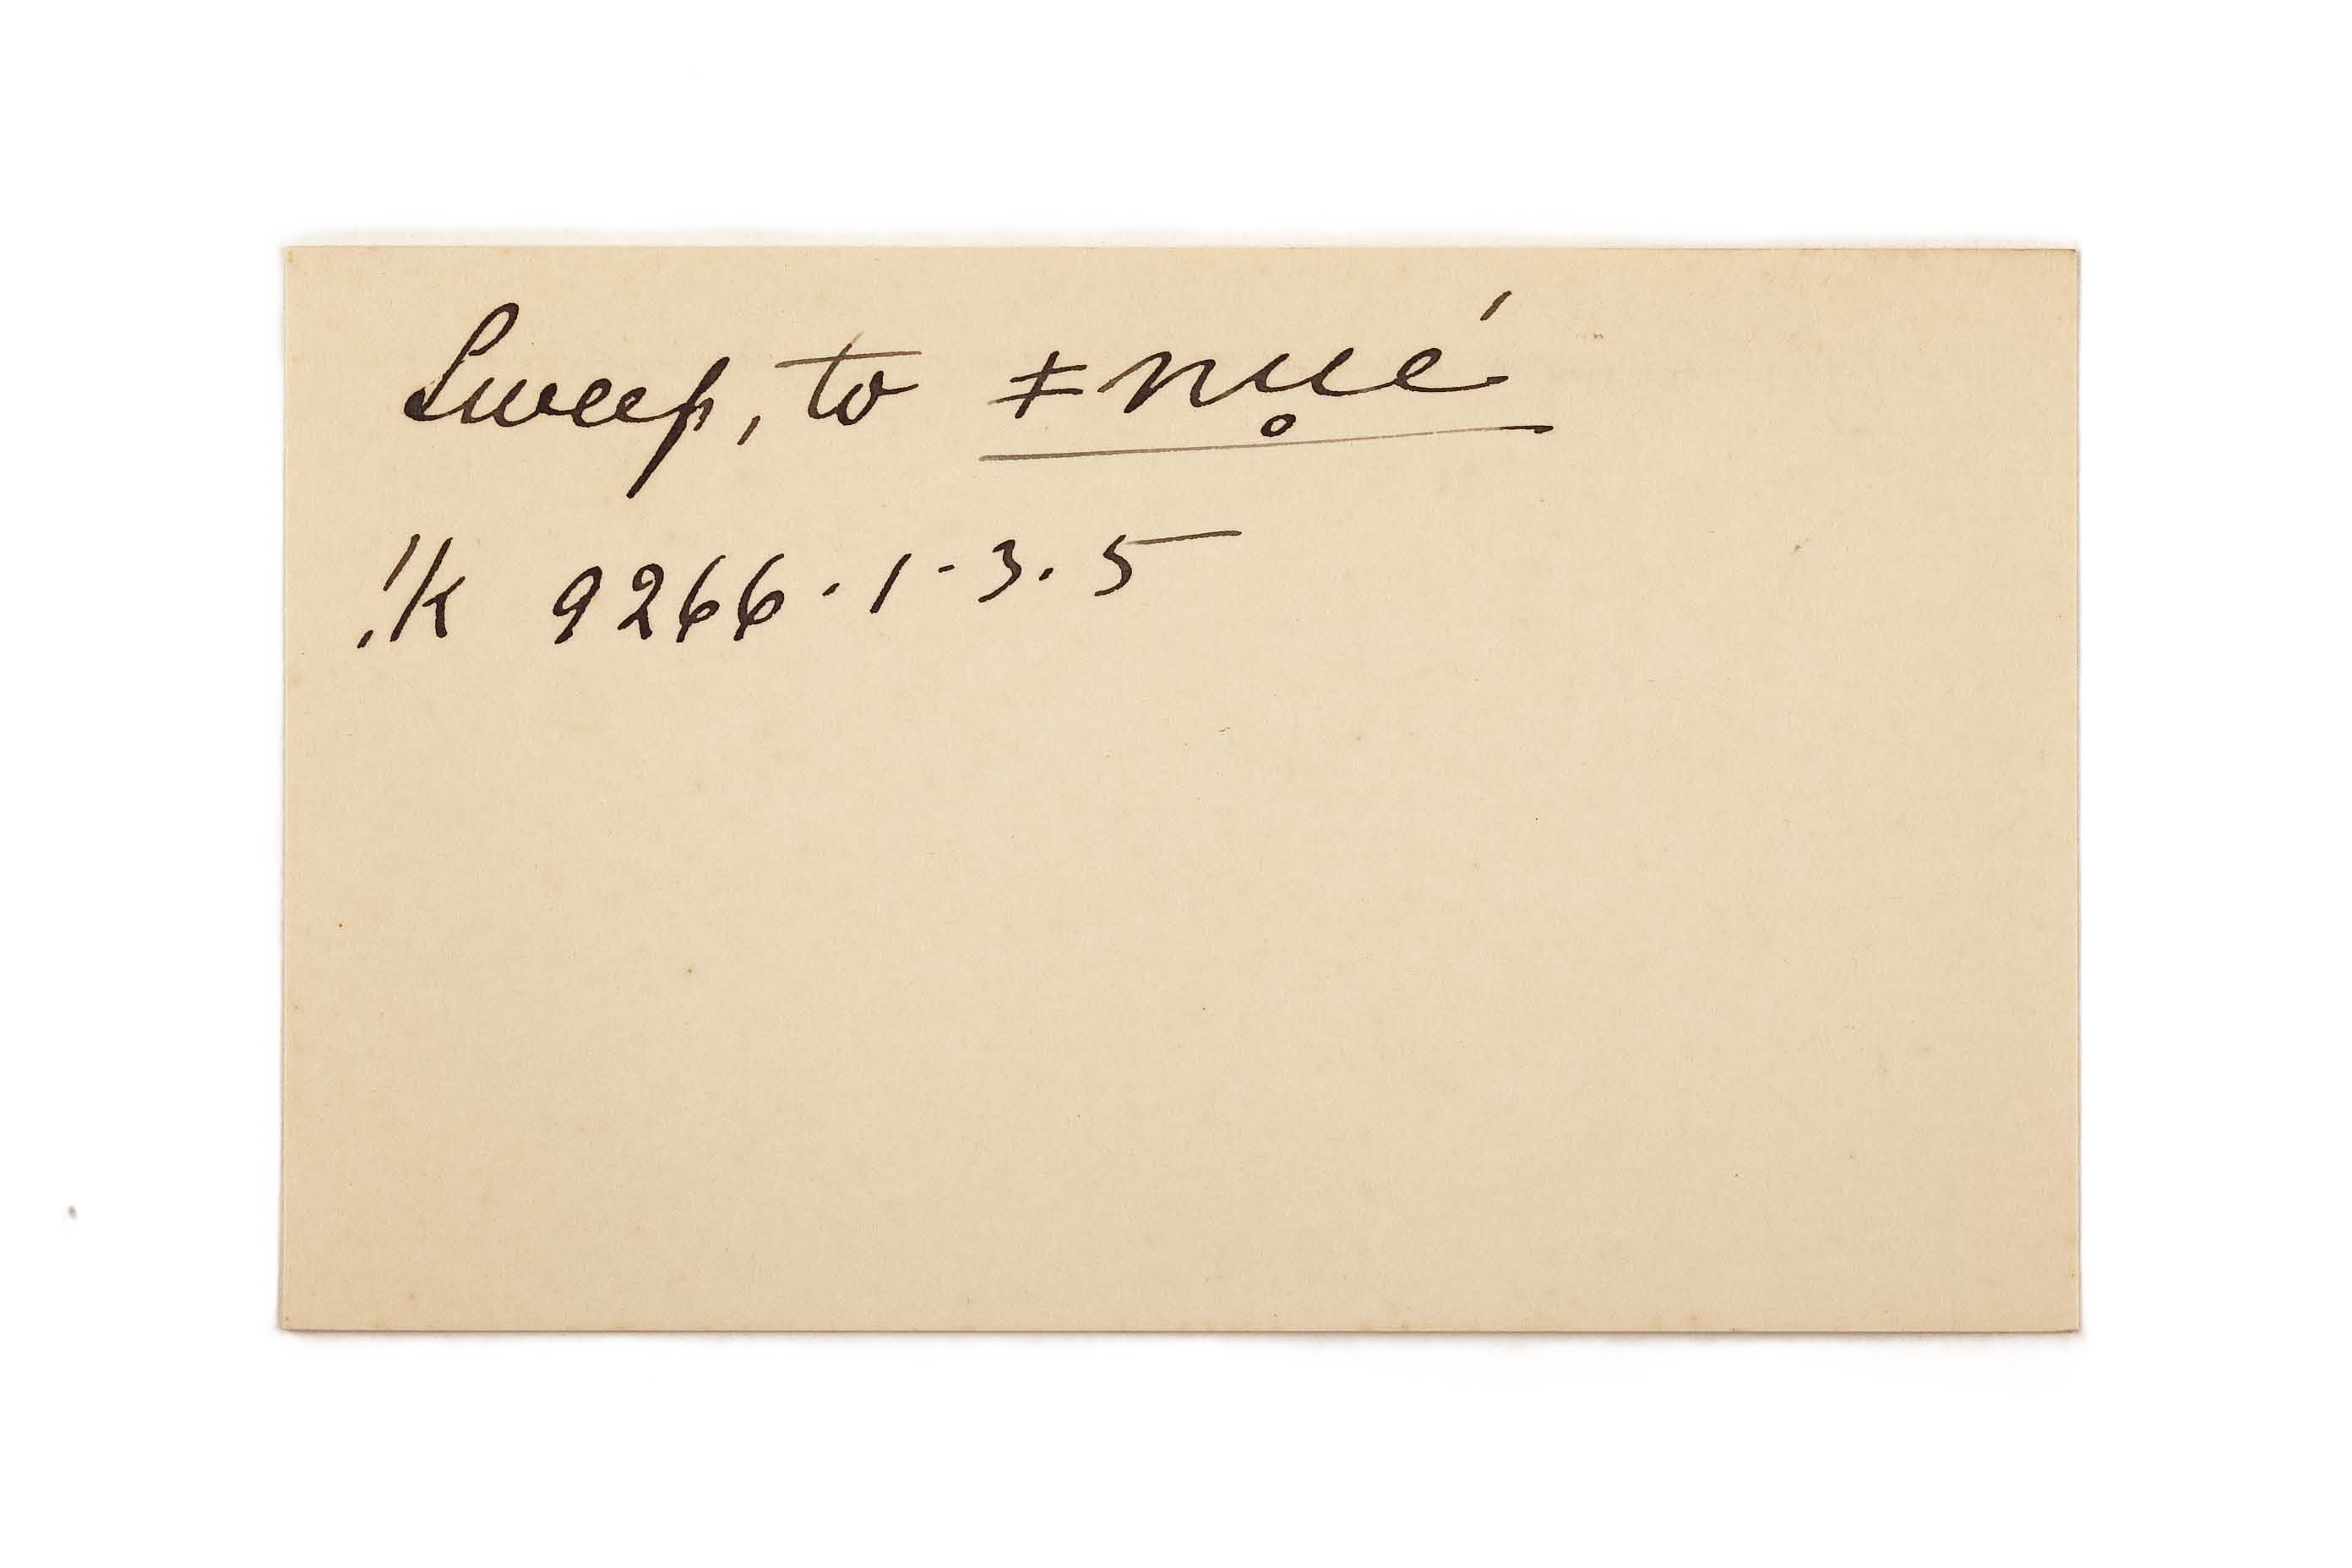 Sweep, to ǂnu̥é
!k 9266.1-3.5